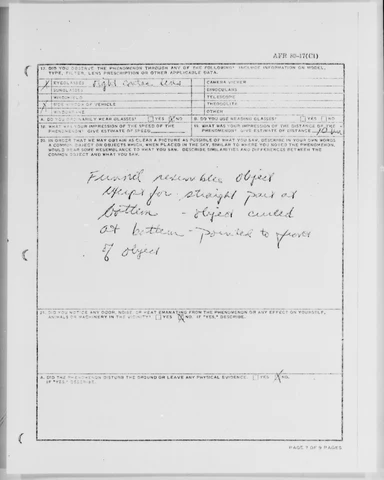 AFR 80-17(C1)
17. DID YOU OBSERVE THE PHENOMENON THROUGH ANY OF THE FOLLOWING? INCLUDE INFORMATION ON MODEL, TYPE, FILTER, LENS PRESCRIPTION OR OTHER APPLICABLE DATA.
X EYEGLASSES CAMERA VIEWER
SUNGLASSES BINOCULARS
WINDSHIELD TELESCOPE
X SIDE WINDOW OF VEHICLE THEODOLITE
WINDOWPANE OTHER
A. DO YOU ORDINARILY WEAR GLASSES? YES X NO B. DO YOU USE READING GLASSES? YES NO
18. WHAT WAS YOUR IMPRESSION OF THE SPEED OF THE PHENOMENON? GIVE ESTIMATE OF SPEED 19. WHAT WAS YOUR IMPRESSION OF THE DISTANCE OF THE PHENOMENON? GIVE ESTIMATE OF DISTANCE 10
20. IN ORDER THAT WE MAY OBTAIN AS CLEAR A PICTURE AS POSSIBLE OF WHAT YOU SAW, DESCRIBE IN YOUR OWN WORDS A COMMON OBJECT OR OBJECTS WHICH, WHEN PLACED IN THE SKY, SIMILAR TO WHERE YOU NOTED THE PHENOMENON, WOULD BEAR SOME RESEMBLANCE TO WHAT YOU SAW. DESCRIBE SIMILARITIES AND DIFFERENCES BETWEEN THE COMMON OBJECT AND WHAT YOU SAW.
Funnel resembles object
except for straight part at
bottom - object curled
at bottom - pointed to front
of object
21. DID YOU NOTICE ANY ODOR, NOISE, OR HEAT EMANATING FROM THE PHENOMENON OR ANY EFFECT ON YOURSELF, ANIMALS OR MACHINERY IN THE VICINITY? YES X NO. IF "YES," DESCRIBE.
A. DID THE PHENOMENON DISTURB THE GROUND OR LEAVE ANY PHYSICAL EVIDENCE? YES X NO. IF "YES," DESCRIBE.
PAGE 7 OF 9 PAGES